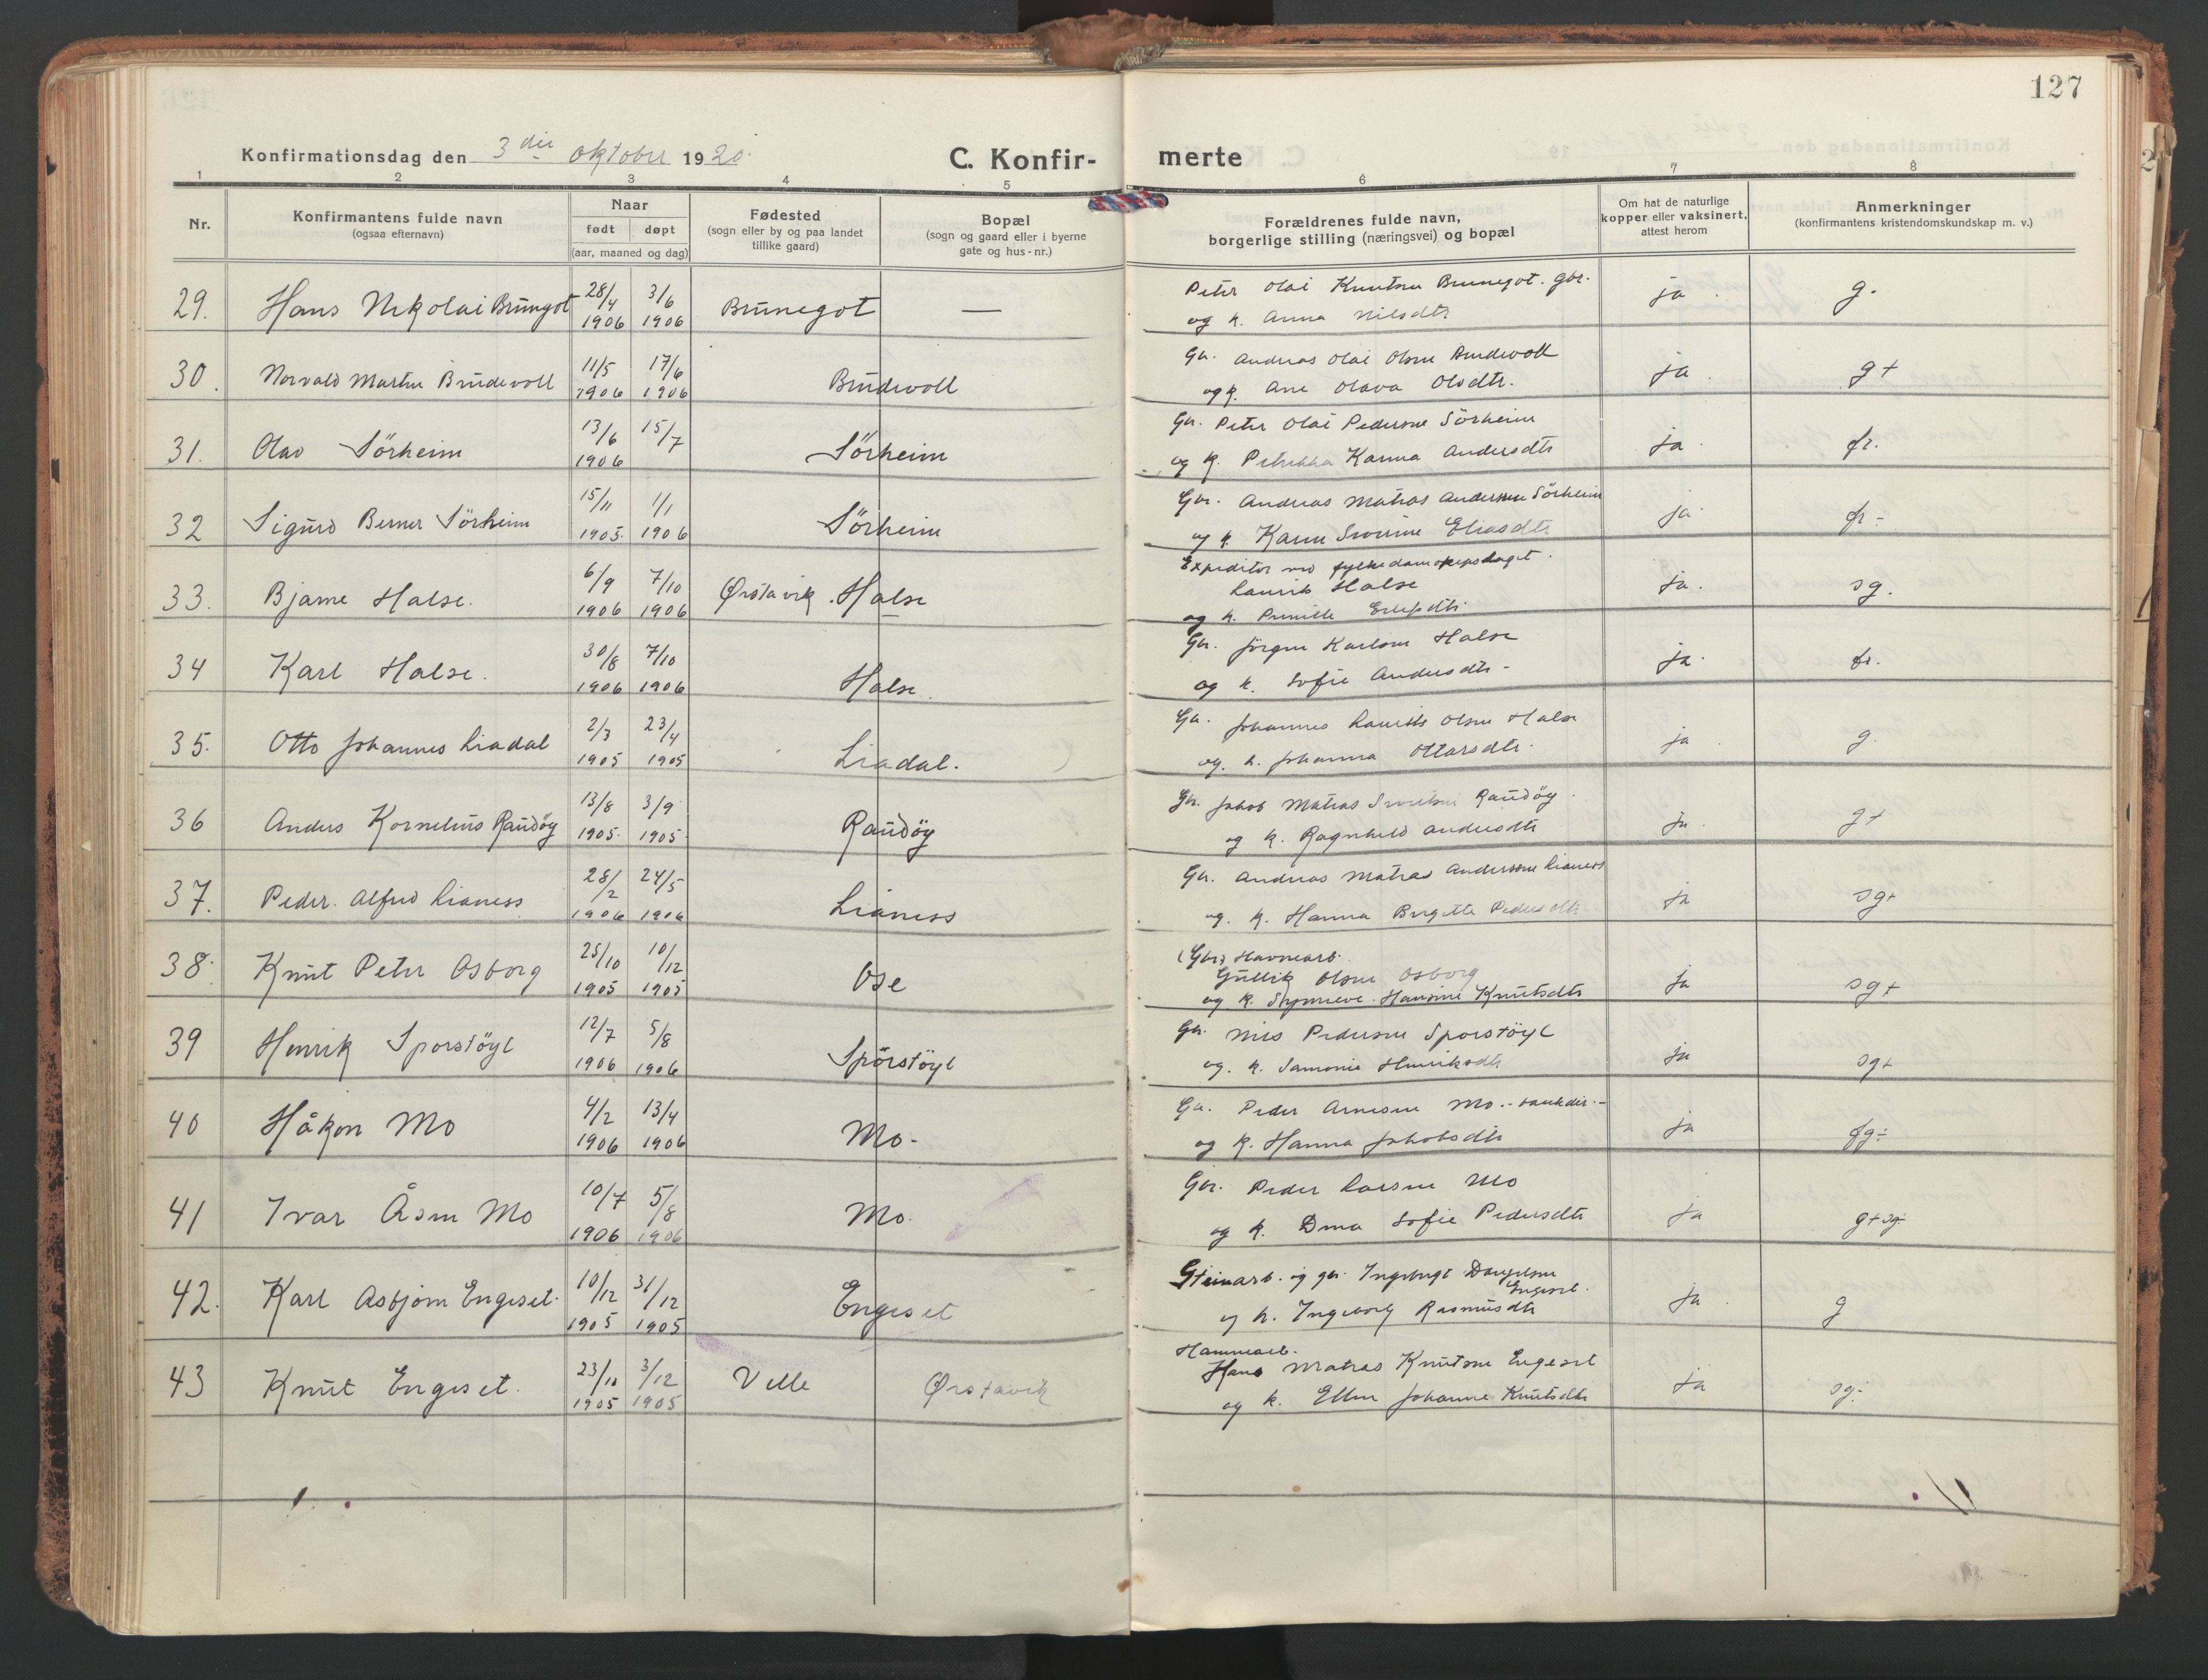 127
Konfirmationsdag den 3die oktober 1920.
C. Konfirmerte
1 2 3 4 5 6 7 8
Nr.
Konfirmantens fulde navn
(ogsaa efternavn)
Naar
født døpt
(aar, maaned og dag)
Fødested
(sogn eller by og paa landet
tillike gaard)
Bopæl
(sogn og gaard eller i byerne
gate og hus-nr.)
Forældrenes fulde navn,
borgerlige stilling (næringsvei) og bopæl
Om hat de naturlige
kopper eller vaksinert,
attest herom
Anmerkninger
(konfirmantens kristendomskundskap m. v.)
29. Hans Nikolai Brungot 28/4 1906 3/6 1906 Brunegot — Peter Olai Knutsen Brunegot. gbr. ja. g.
og k. Anna Nilsdtr
30. Norvald Martin Brudevoll 11/5 1906 17/6 1906 Brudevoll Gbr. Andreas Olai Olsen Brudevoll ja. g+
og k. Ane Olava Olsdtr.
31. Olav Sörheim 13/6 1906 15/7 Sörheim Gbr. Peter Olai Pedersen Sörheim ja. fr.
og k. Petrikka Karina Andersdtr
32 Sigurd Berner Sörheim 15/11 1905. 1/1 1906 Sörheim Gbr. Andreas Matias Andersen Sörheim ja. fr-
og k. Karen Severine Eliasdtr
33. Bjarne Halse. 6/9 1906 7/10 1906 Ørstavik. Halse Expeditör ved fylkesdampskipsdaget. ja. sg.
Laurits Halse
og k. Pernille Ellefsdtr.
34 Karl Halse. 30/8 1906 7/10 1906 Halse. Gbr. Jörgen Karlsen Halse ja. fr.
og k. Sofie Andersdtr-
35. Otto Johannes Liadal 2/3 1905 23/4 1905 Liadal. Gbr. Johannes Laurits Olsen Halse ja. g.
og. k. Johanna Ottarsdtr.
36 Anders Kornelius Raudöy 13/8 1905. 3/9 1905. Raudöy Gbr. Jakob Matias Sivertsen Raudöy. ja. g+
og k. Ragnhild Andersdtr
37. Peder Alfred Lianess 28/2 1906 24/5 1906 Lianess Gbr. Andreas Matias Anderssen Lianess ja sg+
og. k. Hanna Birgitte Pedersdtr
38. Knut Peter Osborg 25/10 1905 10/12 1905 Ose (Gbr) Havnearb. ja sg+
Gullik Olsen Osborg
og k. Synneve Hansine Knutsdtr
39 Henrik Sporstöyl 12/7 1906 5/8 1906 Sporstöyl Gbr. Nils Pedersen Sporstöyl ja sg+
og. k. Samonie Henriksdtr
40 Håkon Mo 4/2 1906 13/4 1906 Mo- Gbr. Peder Arnesen Mo.- ja fg÷
og k. Hanna Jakobsdtr
41 Ivar Åsen Mo 10/7 1906 5/8 1906 Mo. Gbr. Peder Larsen Mo ja g+sg-
og k. Dina Sofie Pedersdtr
42. Karl Asbjörn Engeset. 10/12 1905 31/12 1905 Engeset Steinarb. og gbr. Ingebrigt Danielsen Engeset. ja. g
og k. Ingeborg Rasmusdtr
43 Knut Engeset. 23/10 1905 3/12 1905 Velle Ørstavik Hamnearb. ja sg-
Hans Matias Knutsen Engeset
og k. Ellen Johanne Knutsdtr